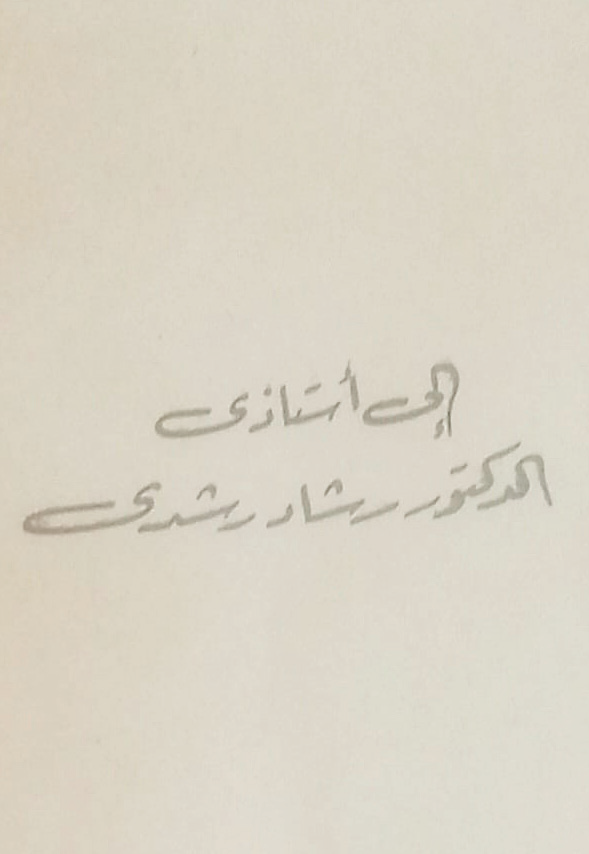 إلى أستاذى
الدكتور رشاد رشدى